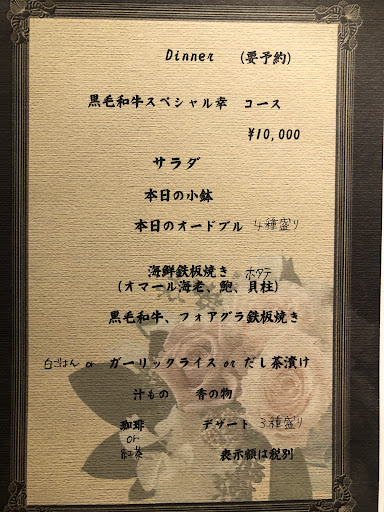 Dinner (要予約)
黒毛和牛スペシャル幸 コース
¥10,000
サラダ
本日の小鉢
本日のオードブル 4種盛り
海鮮鉄板焼き ホタテ
(オマール海老、鮑、貝柱)
黒毛和牛、フォアグラ鉄板焼き
白ごはん or ガーリックライス or だし茶漬け
汁もの 香の物
珈琲 デザート 3種盛り
or
紅茶 表示額は税別